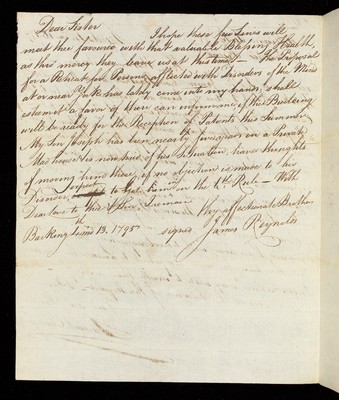 Dear Sister
I hope these few Lines will
meet thee favoured with that valuable Blessing Health,
as thro' mercy they leave us at this time — The Proposal
for a Retreat for Persons afflicted with Disorders of the Mind
at or near York has lately come into my hands, I shall
esteem it a favor if thee can inform me, if the Building
will be ready for the Reception of Patients this Summer
My Son Joseph has been nearly five years in a Private
Mad house & is now sick of his Situation, have thoughts
of moving him there, if no objection is made to his
Disorder, expect to get him in on the 1st Rule — With
Dear love to thee & thine I remain
thy affectionate Brother
Barking 13. 1795
signed James Reynolds